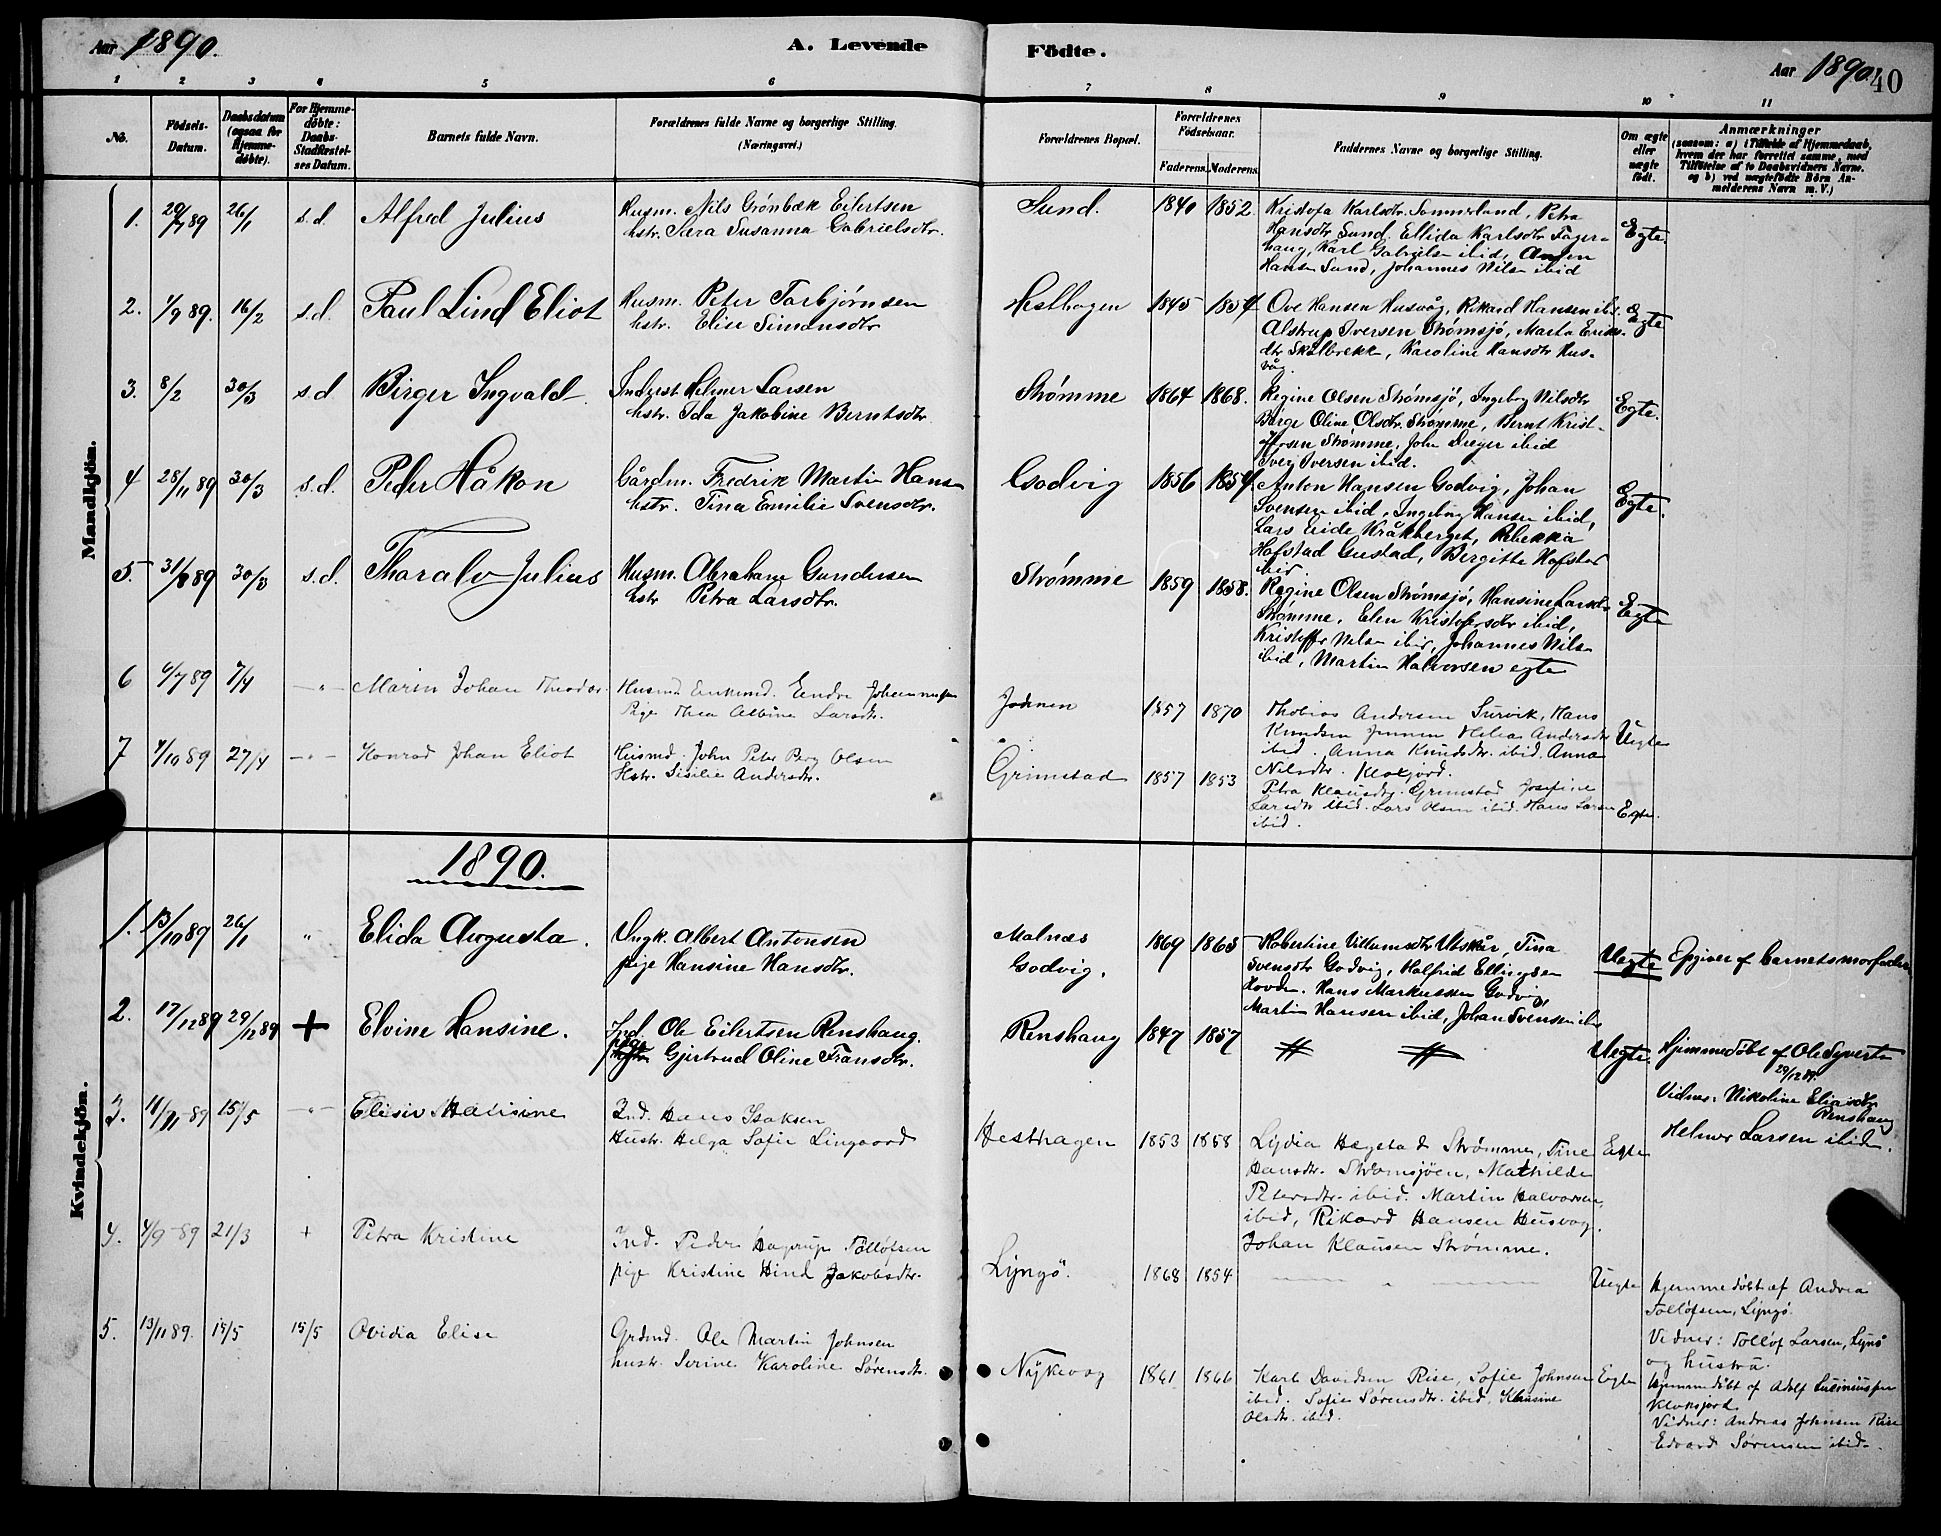 Aar 1890.
A. Levende Födte.
Aar 1890.
40
1 2 3 4 5 6 7 8 9 10 11
No.
Födsels-Datum.
Daabsdatum (ogsaa for Hjemme-döbte).
For Hjemme-döbte: Daabs-Stadfæstel-ses Datum.
Barnets fulde Navn.
Forældrenes fulde Navne og borgerlige Stilling. (Næringsvei.)
Forældrenes Bopæl.
Forældrenes Födselsaar.
Faderens. Moderens.
Faddernes Navne og borgerlige Stilling.
Om ægte eller uægte födt.
Anmærkninger
(saasom: a) i Tilfælde af Hjemmedaab,
hvem der har forrettet samme, med
Tilföielse af to Daabsvidners Navne.
og b) ved uægtefödte Börn An-
melderens Navn m. V.)
Mandkjön.
1. 29/7 89 26/1 s.d. Alfred Julius
Husm. Nils Grönbæk Eilertsen
hstr. Sara Susanna Gabrielsdtr.
Sund. 1840 1852
Kristofa Karlsdtr. Sommerland, Petra
Hansdtr Sund. Ellida Karlsdtr Fager-
haug, Karl Gabrielsn ibid, Anton
Hansen Sund, Johannes Nilsn ibid
Egte.
2. 1/9 89. 16/2 s.d. Paul Lind Eliot
Husm. Peter Torbjörnsen
hstr. Elise Simonsdtr
Hesthagen 1845 1854
Ove Hansen Husvåg, Rikard Hansen ibid.
Alstrup Iversen Strømsjö, Marta Eriks-
dtr Skålbrekk, Karoline Hansdtr Hus-
våg
Egte
3. 8/2 30/3 s.d Birger Ingvald.
Inderst Helmer Larsen
hstr. Ida Jakobine Berntsdtr.
Strømme 1864 1868.
Regine Olsen Strømsjö, Ingebor Nilsdtr
Börge Oline Olsdtr. Strømme, Bernt Krist-
ofersen Strømme, John Dreyer ibid
Iver Iversen ibid.
Egte.
4 28/11 89 30/3 s.d. Peder Håkon
Gårdm. Fredrik Martin Hansn
hstr. Tina Emilie Svensdtr.
Godvig 1856 1854.
Anton Hansen Godvig, Johan
Svensen ibid, Ingebor Hansen ibid,
Lars Eide Kråkberget, Rebekka
Hofstad Gustad, Bergitte Hofstad
ibid
Egte.
5. 31/8 89 30/3 s.d. Tharalv Julius
Husm. Abraham Gundersen
hstr Petra Larsdtr.
Strømme 1859 1858.
Regine Olsen Strømsjö, Hansine Larsdtr
Strømme, Elen Kristofersdtr ibid,
Kristoffer Nilsn ibid, Johannes Nilsn
ibid, Martin Halvorsen egte
Egte
6 6/7 89 7/4 — " — Marin Johan Theodor.
Husmd Enkemd. Endre Johannessen
Pige Thea Albine Larsdtr.
Jennen 1857 1870
Thobias Andersen Survik, Hans
Knudsen Jennen Helia Andersdtr
ibid. Anna Knudsdtr. ibid. Anna
Nilsdtr. Kloxjord.
Uegte
7 4/10 89 27/4 — " — Konrad Johan Eliot
Husmd. John Peter Berg Olsen
Hstr. Sisilie Andersdtr.
Grimstad 1857 1853
Petra Klausdtr. Grimstad Josefine
Larsdtr ibid. Lars Olsen ibid. Hans Larsen
ibid.
Egte.
1890.
Kvindekjön.
1. 13/10 89 26/1 " Elida Augusta.
Ungk. Albert Antonsen
pige Hansine Hansdtr.
Malnes
Godvig. 1869 1863
Robertine Villumsdtr Utskår, Tina
Svensdtr Godvig, Halfrid Ellingsen
Hovden. Hans Markussen Godvig,
Martin Hansen ibid, Johan Svensen ibid
Uegte
Opgiver af barnets morfader
2. 17/12 89 29/12 89 + Elvine Hansine.
Ind. Ole Eilertsen Renshaug.
pige Gjertrud Oline Fransdtr.
Renshaug 1847 1857
Uegte.
Hjemmedöbt af Ole Syverts
29/12 89.
Vidner: Nikoline Eliasdtr
Renshaug
Helmer Larsen ibid.
3. 11/11-89 15/5 — " — Elisiv Mætisine
Ind. Hans Isaksen
Hustr. Helga Sofie Lingaard
Hesthagen 1853 1858
Lydia Hegstad Strømme, Tine
Hansdtr. Strømsjöen, Mathilde
Petersdtr. ibid. Martin Halvorsen,
ibid, Rikard Hansen Husvåg.
Johan Klausen Strömme.
Egte
4. 4/9-89 21/3 + Petra Kristine
Ind. Peder Hagerup Tollöfsen
pige Kristine Hind Jakobsdtr.
Lyngö. 1868 1854
Uegte
Hjemmedöbt af Andrea
Tollöfsen, Lyngö.
Vidner: Tollöf Larsen, Lynö
og hustru.
5. 13/11 89. 15/5 15/5 Ovidia Elise
Grdmd. Ole Martin Johnsen
hustr. Serine Karoline Sörensdtr.
Nykvåg 1861 1866
Karl Davidsen Rise, Sofie Johnsen
ibid. Sofie Sörensdtr. ibid, Klausine
Olsdtr. ibid.
Egte
Hjemmedöbt af Adolf Susiniussen
Kloksjord
Vidner: Andreas Johnsen Rise
Edvard Sörensen ibid.